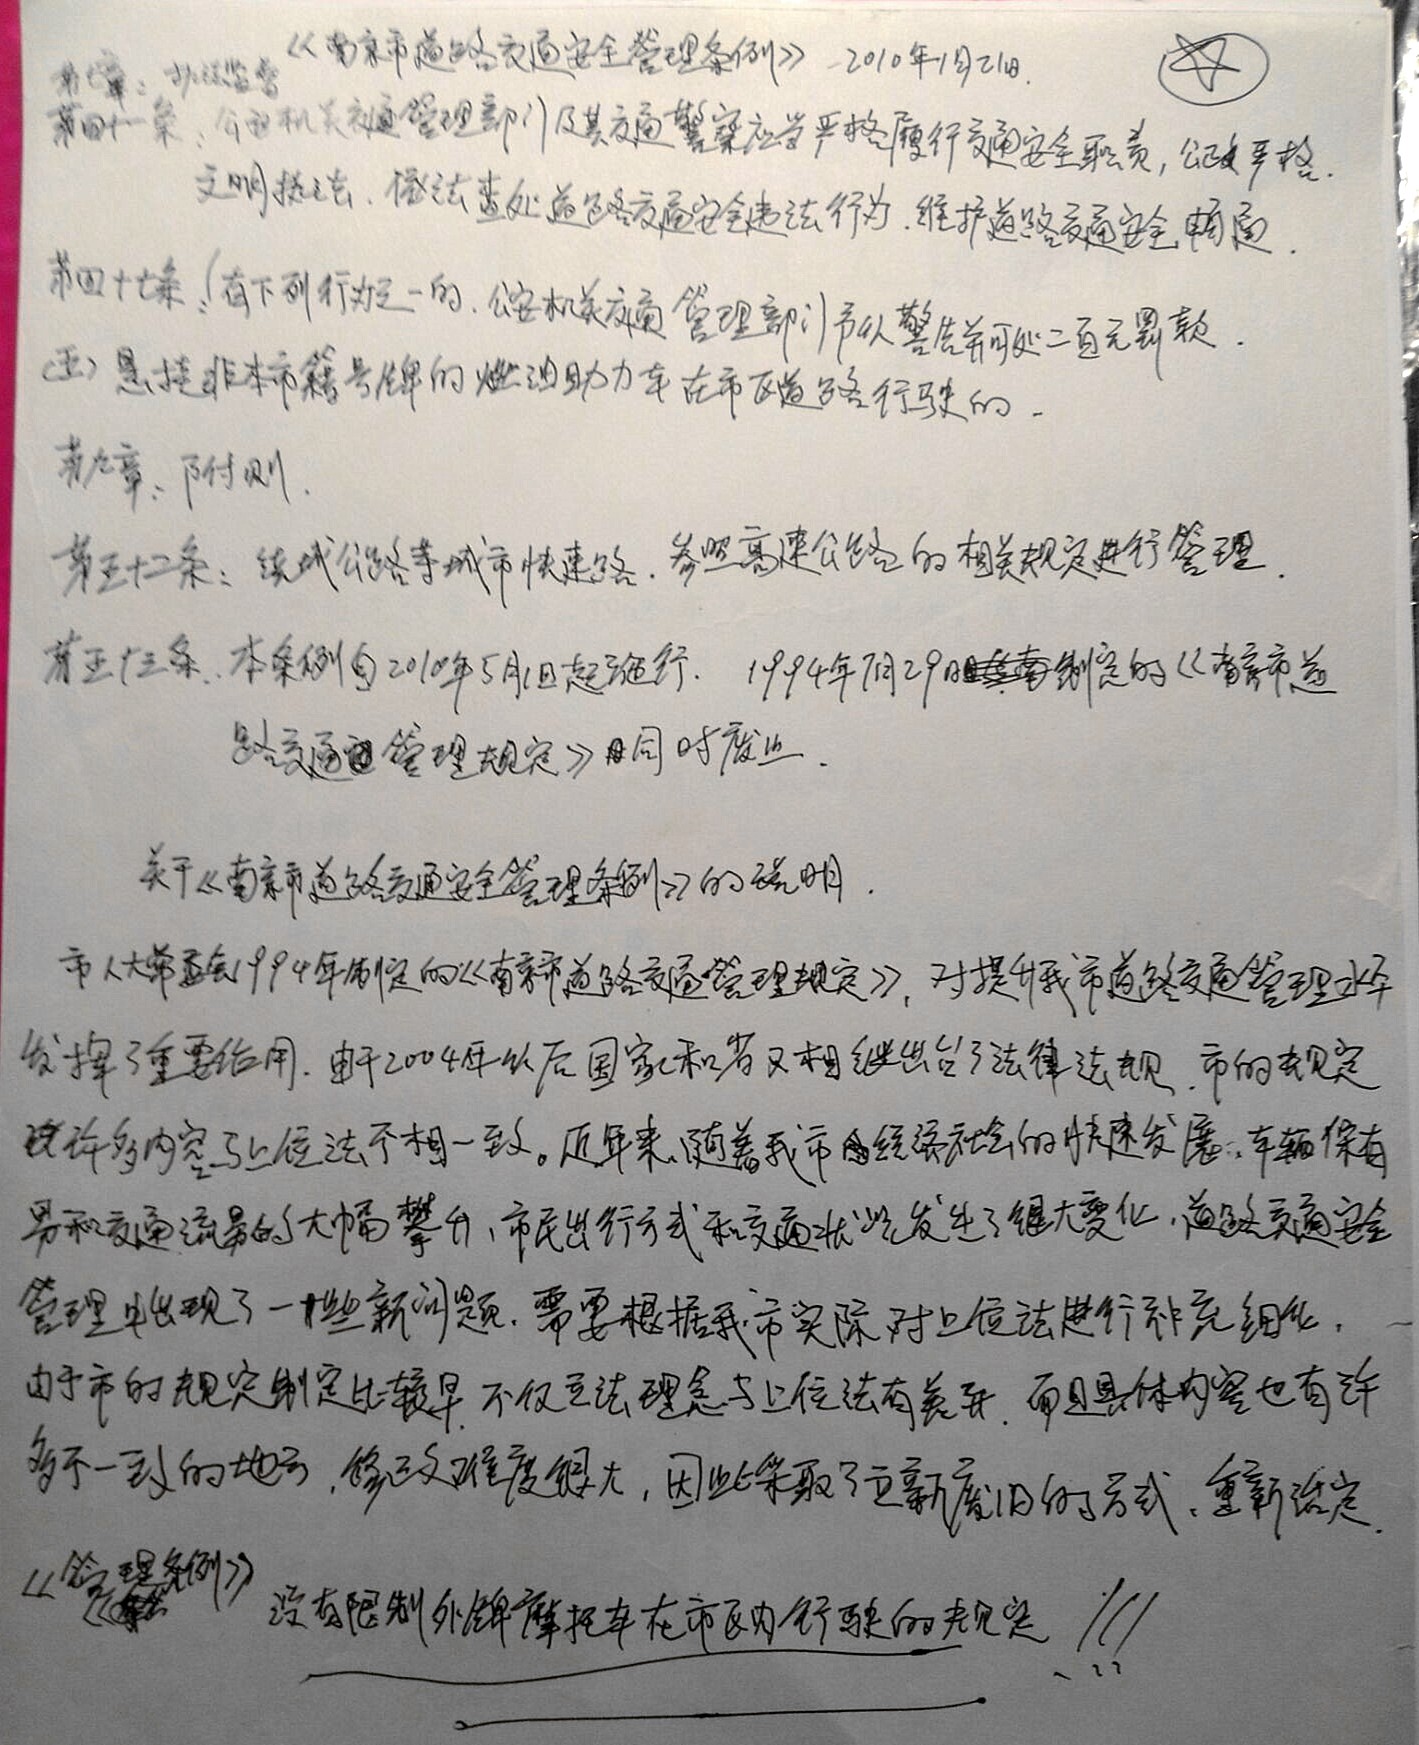 《南京市道路交通安全管理条例》 2010年1月21日.
第七章: 执法监督
第四十一条: 公安机关交通管理部门及其交通警察应当严格履行交通安全职责, 公正严格.
文明执法. 依法查处道路交通安全违法行为. 维护道路交通安全畅通.
第四十七条: 有下列行为之一的. 公安机关交通管理部门予以警告并可处二百元罚款.
(五) 悬挂非本市籍号牌的燃油助力车在市区道路行驶的.
第九章: 附则.
第五十二条: 绕城公路等城市快速路. 参照高速公路的相关规定进行管理.
第五十三条. 本条例自2010年5月1日起施行. 1994年7月29日制定的《南京市道
路交通管理规定》同时废止.
关于《南京市道路交通安全管理条例》的说明.
市人大常委会1994年制定的《南京市道路交通管理规定》, 对提升我市道路交通管理水平
发挥了重要作用. 由于2004年以后国家和省又相继出台了法律法规. 市的规定
许多内容与上位法不相一致。近年来, 随着我市经济社会的快速发展, 车辆保有
量和交通流量的大幅攀升, 市民出行方式和交通状况发生了很大变化, 道路交通安全
管理中出现了一些新问题. 需要根据我市实际对上位法进行补充细化.
由于市的规定制定比较早, 不仅立法理念与上位法有差异. 而且具体内容也有许
多不一致的地方, 修改难度很大, 因此采取了立新废旧的方式, 重新制定.
《管理条例》
没有限制外牌摩托车在市区内行驶的规定!!!